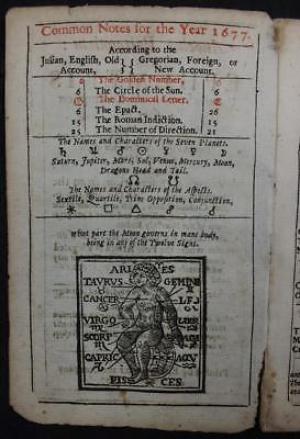 Common Notes for the Year 1677.
According to the
Julian, English, Old } { Gregorian, Foreign, or
Account, } { New Account.
6 The Golden Number, 6
6 The Circle of the Sun. 6
G The Dominical Letter. C
6 The Epact. 26
15 The Roman Indiction. 15
25 The Number of Direction. 21
The Names and Characters of the Seven Planets.
♄ ♃ ♂ ☉ ♀ ☿ ☽
Saturn, Jupiter, Mars, Sol, Venus, Mercury, Moon,
Dragons Head and Tail.
☊ ☋
The Names and Characters of the Aspects.
Sextile, Quartile, Trine Opposition, Conjunction,
⚹ □ △ ☍ ☌
What part the Moon governs in mans body,
being in any of the Twelve Signs.
ARIES
TAVRUS GEMINI
CANCER LEO
VIRGO
SCORP
CAPRIC AQV
PISCES